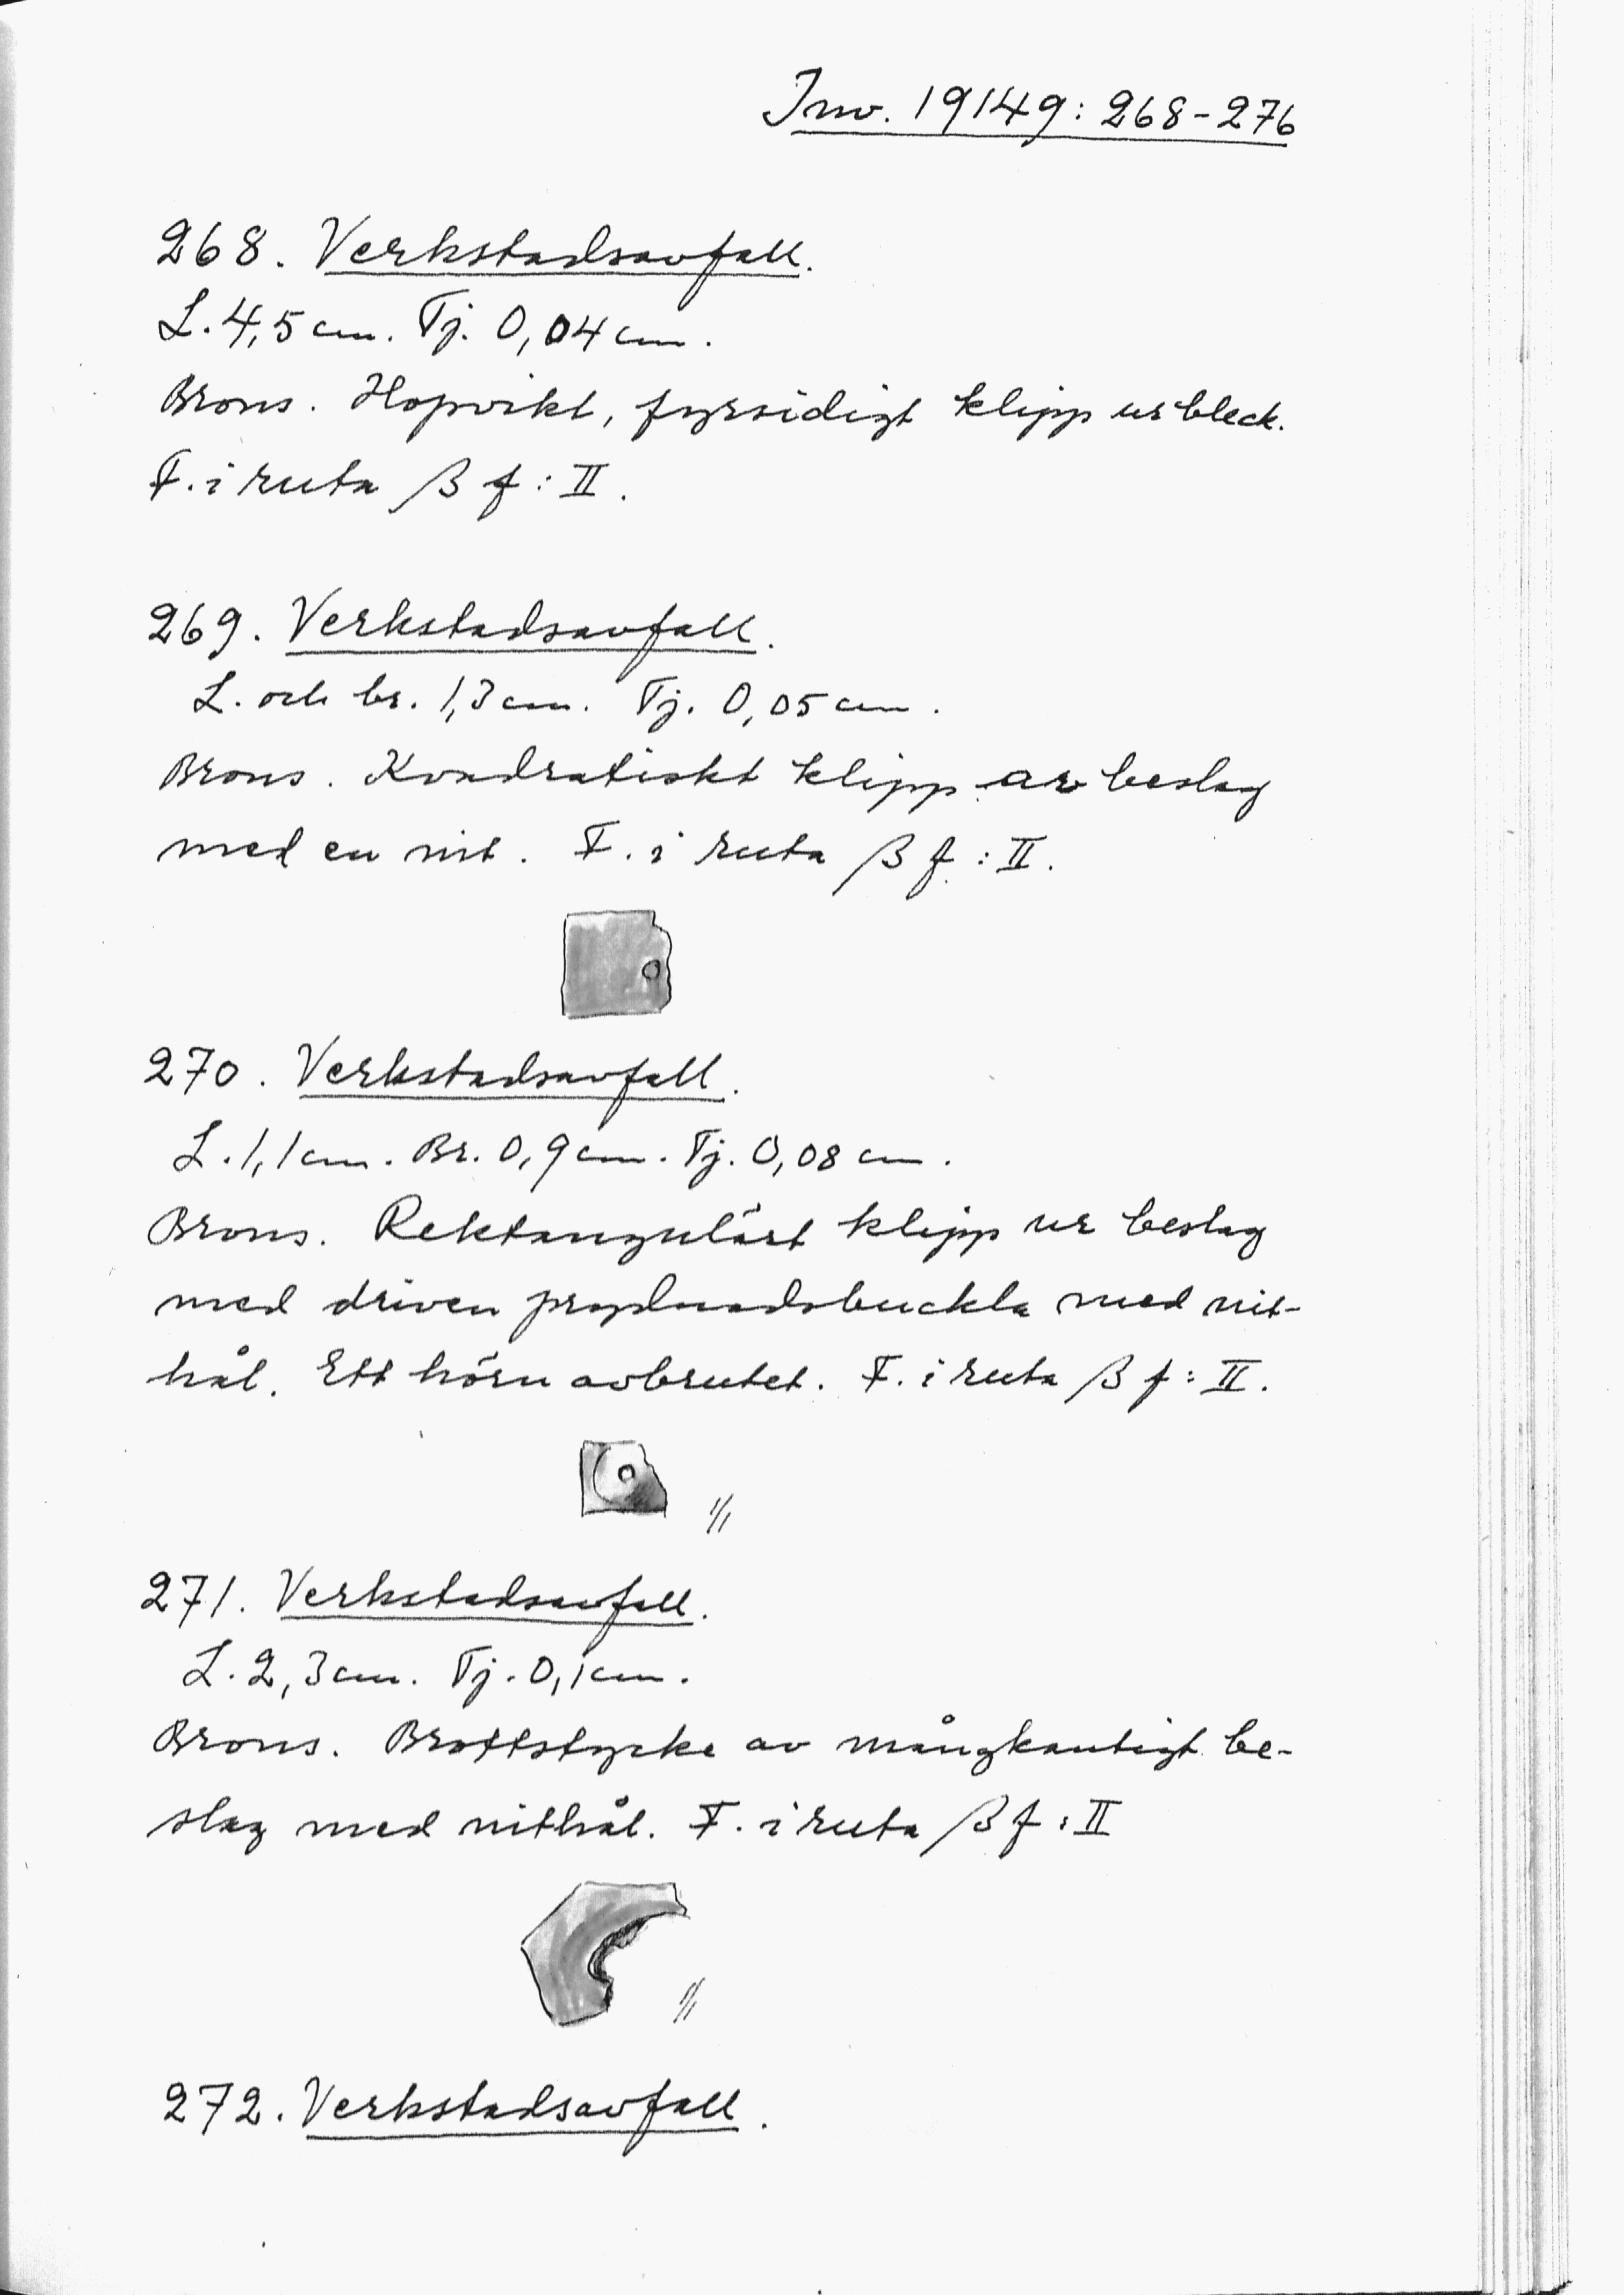 Inv. 19149: 268-276
268. Verkstadsavfall.
L. 4,5 cm. Tj. 0,04 cm.
Brons. Hopvikt, fyrsidigt klipp ur bleck.
F. i ruta β f : II.
269. Verkstadsavfall.
L. och br. 1,3 cm. Tj. 0,05 cm.
Brons. Kvadratiskt klipp av beslag
med en nit. F. i ruta β f : II.
270. Verkstadsavfall.
L. 1,1 cm. Br. 0,9 cm. Tj. 0,08 cm.
Brons. Rektangulärt klipp ur beslag
med driven prydnadsbuckla med nit-
hål. Ett hörn avbrutet. F. i ruta β f : II.
1/1
271. Verkstadsavfall.
L. 2,3 cm. Tj. 0,1 cm.
Brons. Brottstycke av mångkantigt be-
slag med nithål. F. i ruta β f : II
1/1
272. Verkstadsavfall.